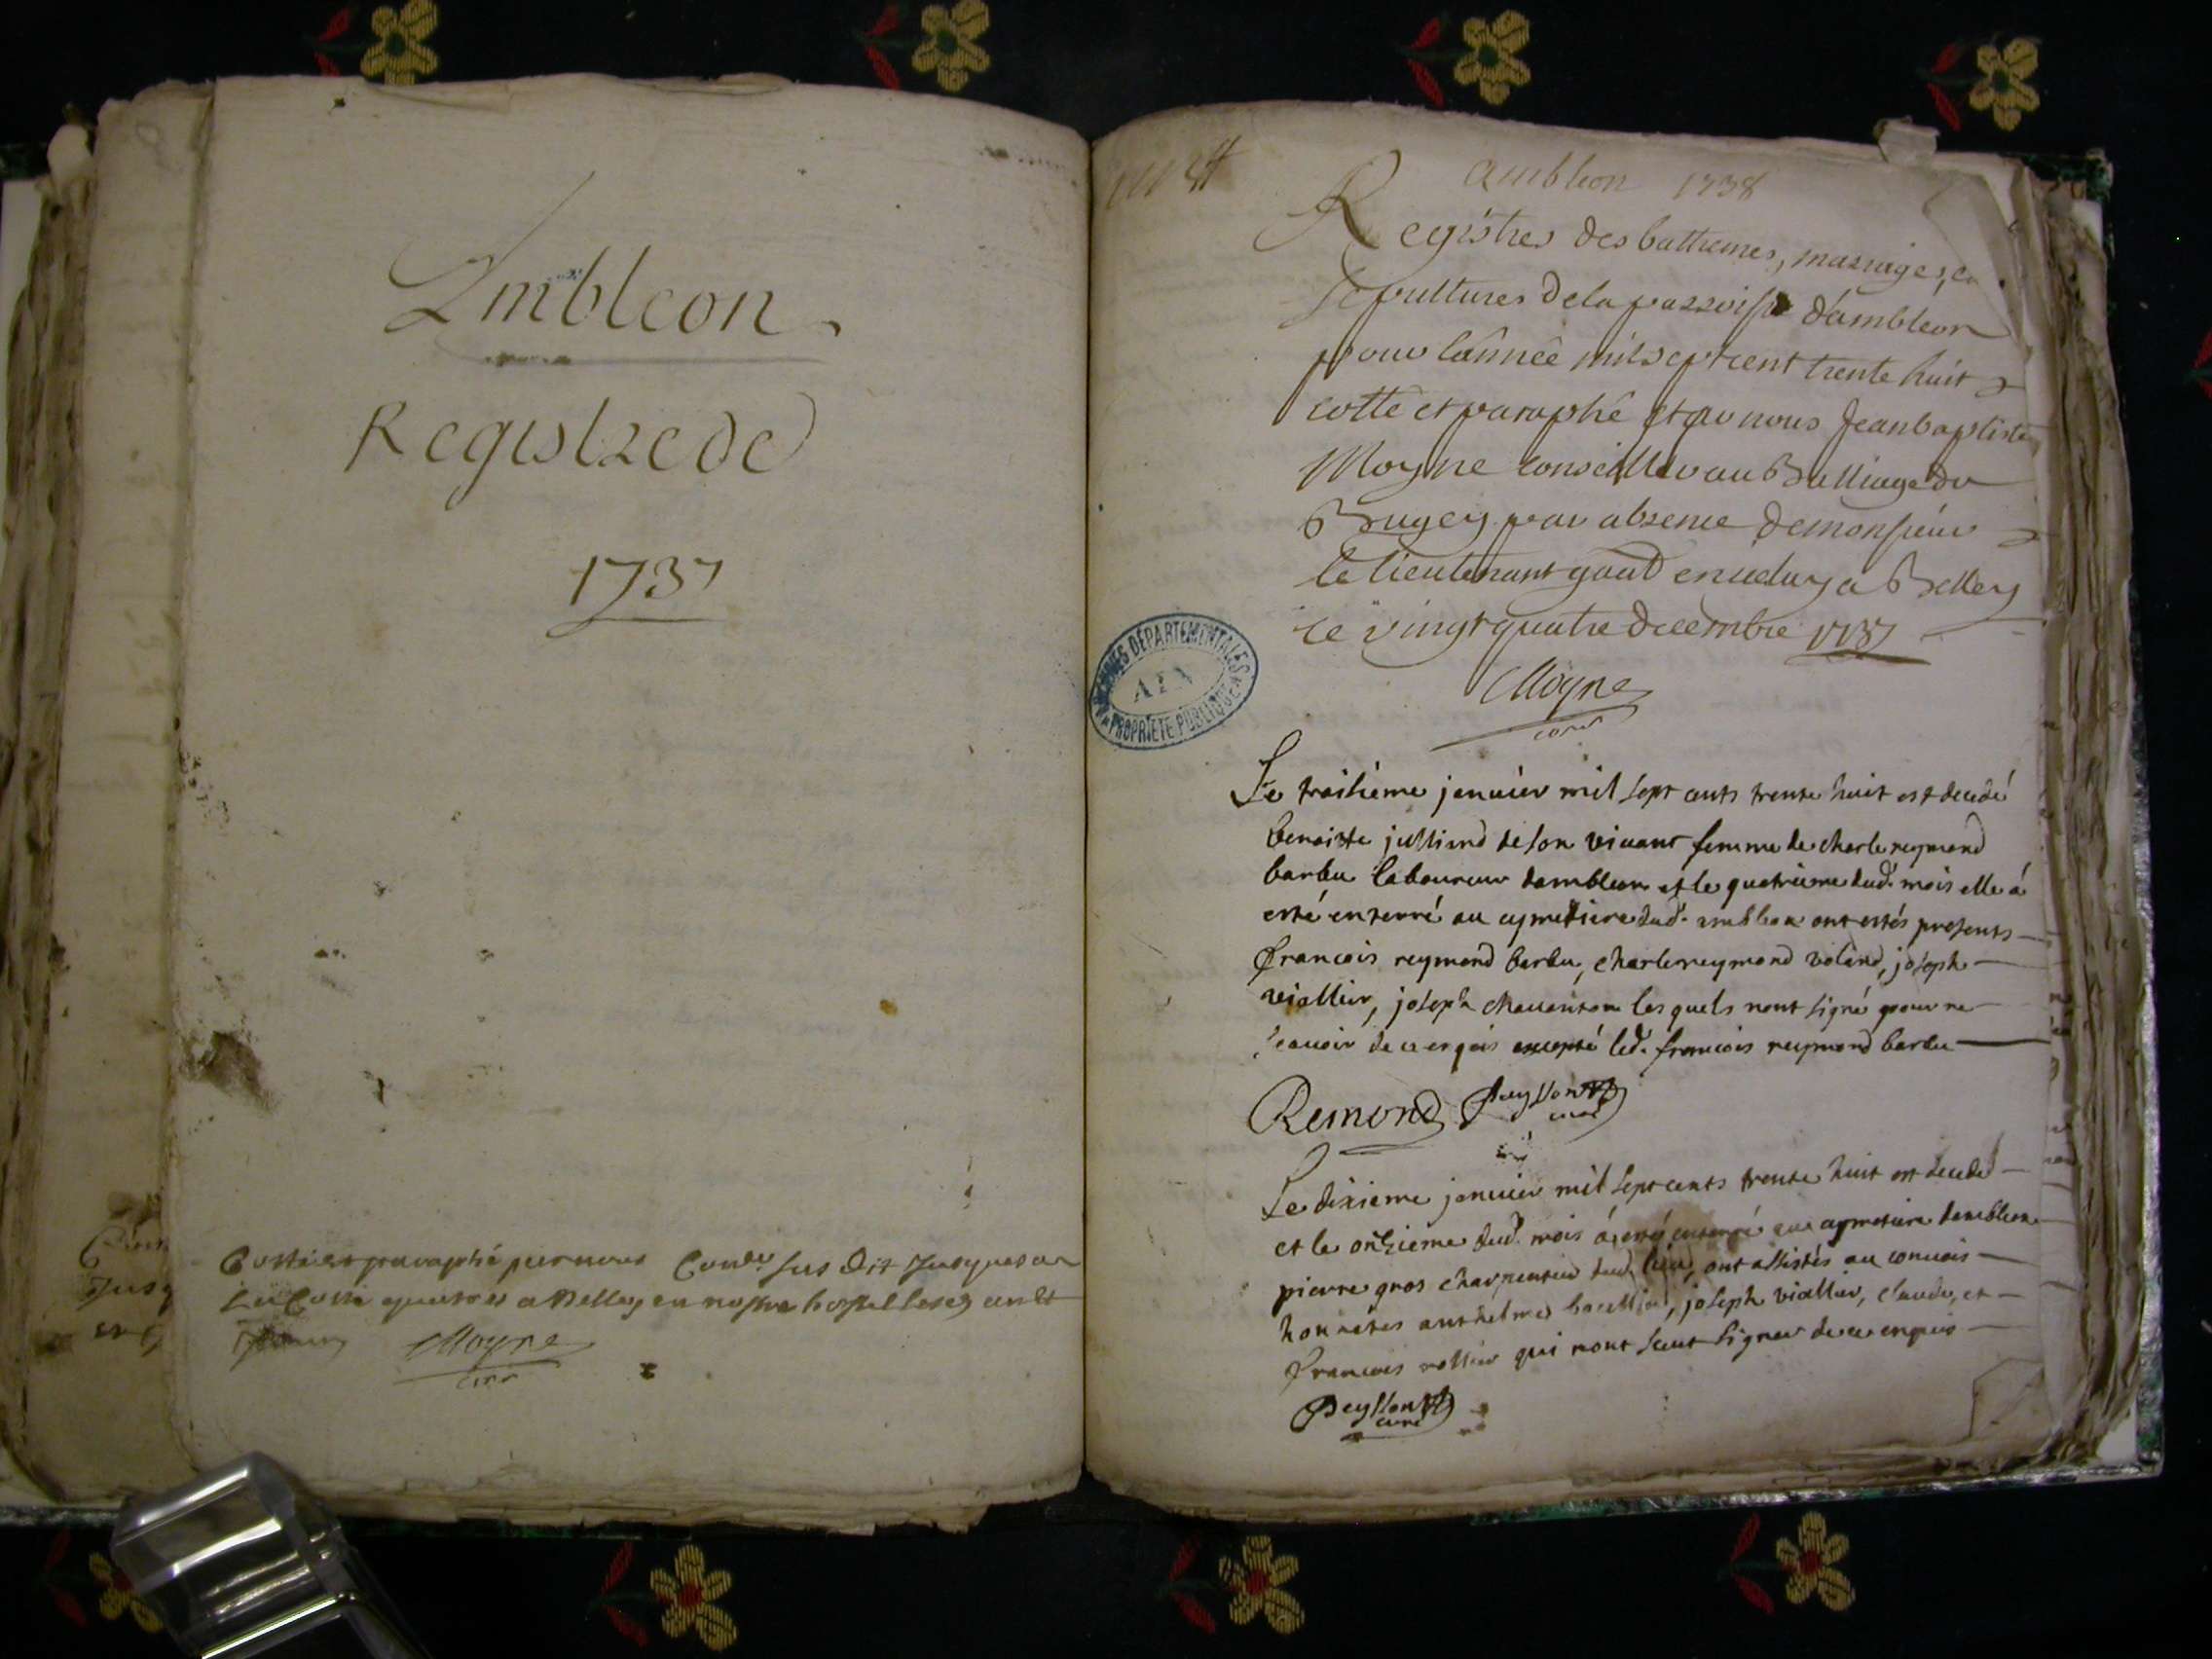 Ambleon
Registre de
1737
Cotté et paraphé par nous Cons.er sus dit Jusques
a Belley en nostre hostel les et
Moyne
ambleon 1738
Registres des battemes, mariages, et
sepultures de la parroisse d'ambleon
pour l'année mil sept cent trente huit
cotté et paraphé par nous Jean baptiste
Moyne conseiller au Balliage du
Bugey par absence de monsieur
le lieutenant gnal a Belley
ce vingt quatre decembre 1737
Moyne
ARCHIVES DÉPARTEMENTALES
AIN
PROPRIÉTÉ PUBLIQUE
Le troisieme janvier mil sept cents trente huit est decedé
benoiste julliand de son vivant femme de charle reymond
barbu laboureur dambleon et le quatrieme dud. mois elle á
esté enterré au cymetiere dud. ambleon ont estés presents
francois reymond barbu, charle reymond voland, joseph
viallier, joseph chavanton lesquels nont signé pour ne
scavoir de ce enquis excepté led. francois reymond barbu
Remond Peysson
curé
Le dixieme janvier mil sept cents trente huit est decedé
et le onzieme dud. mois á esté enterré au cymetiere dambleon
pierre gros charpentier dud. lieu, ont assistés au convois
honnetes anthelme joseph viallier, claude, et
francois qui nont sceut signer de ce enquis
Peysson
curé